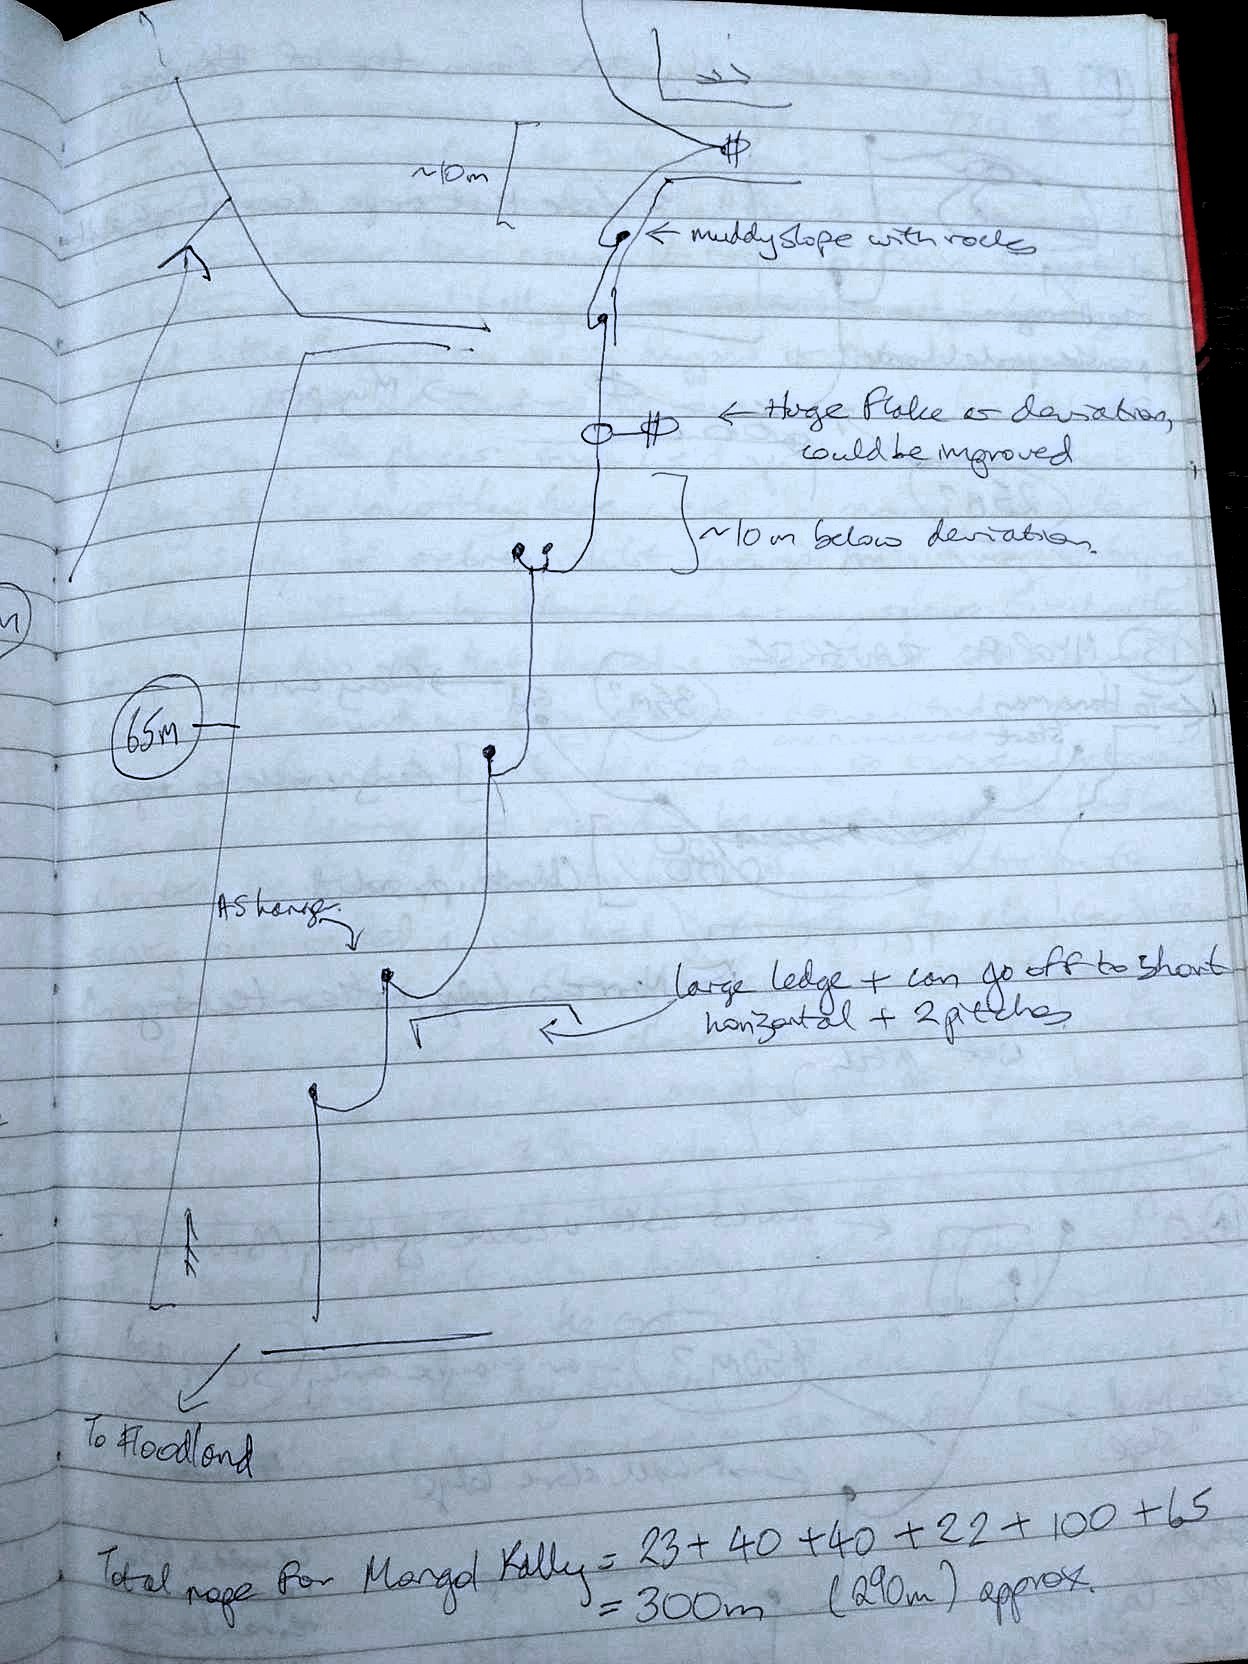 ~10m
← muddy slope with rocks
← Huge flake or deviation,
could be improved
~10m below deviation.
65m
AS hanger
large ledge + can go off to short
horizontal + 2 pitches
To Floodland
Total rope for Mongol Rally = 23 + 40 + 40 + 22 + 100 + 65
= 300m (290m) approx.